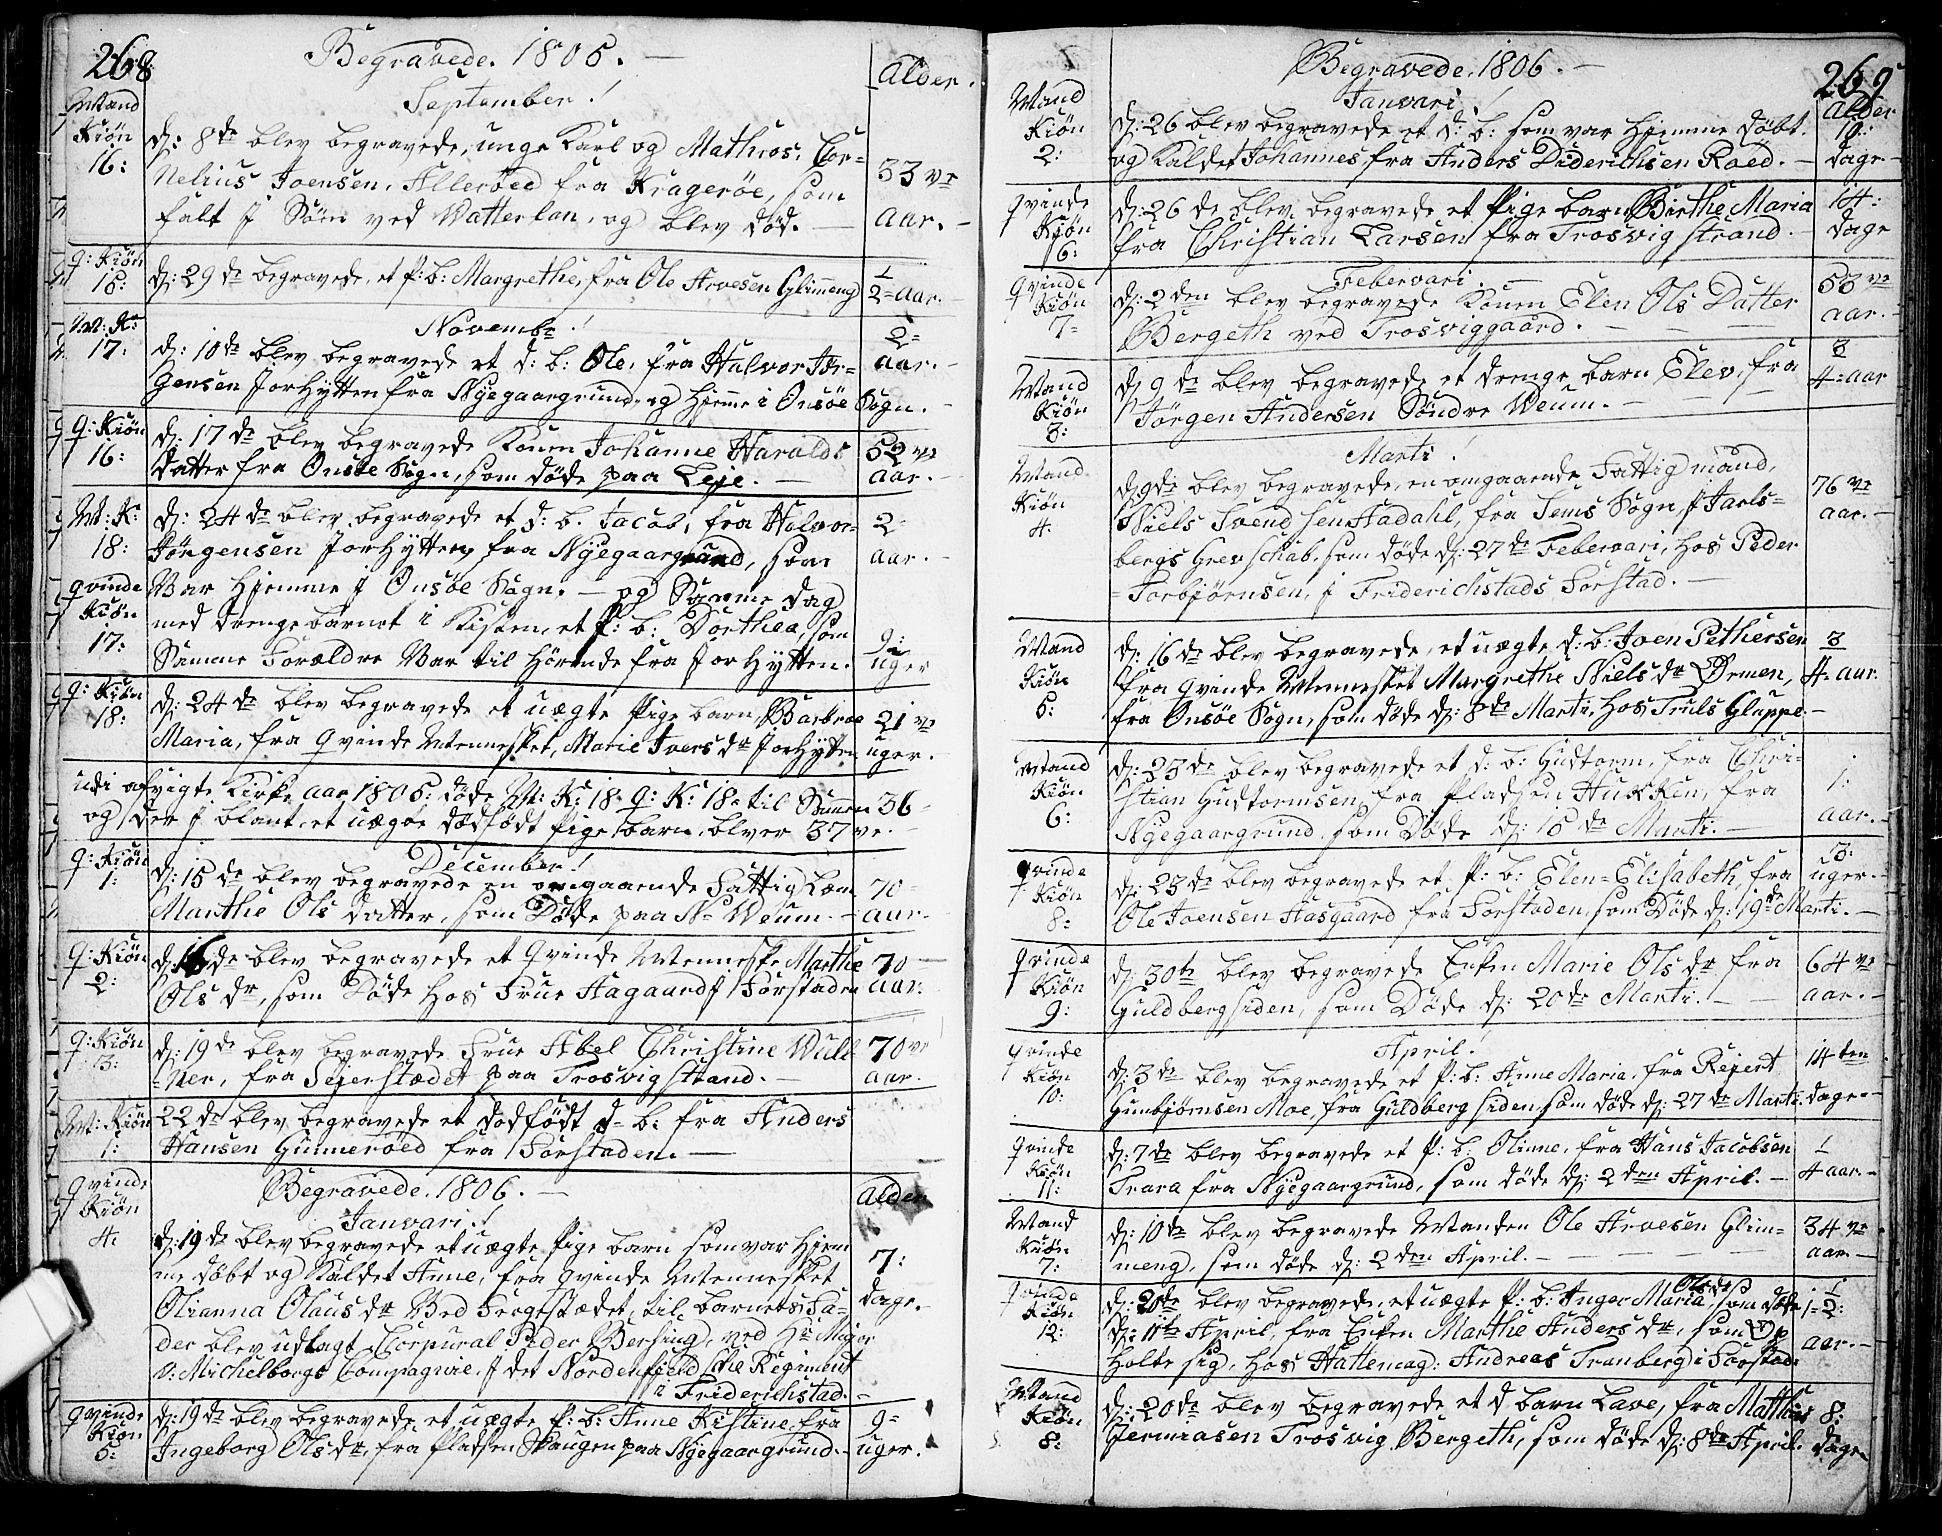 268
Begravede. 1805. —
Alder.
September!
Mand
Kiøn
16:
d: 8de blev begravede, unge Karl og Mathros, Cor=
nelius Joensen, Allerøed fra Kragerøe, som
falt J Søen ved Watterlan, og blev død. —
33 ve
aar. —
q: Kiøn
15:
d: 29de begravede, et p: b: Margrethe, fra Ole Arvesen Glimeng
1
2=aar.
Novembr!
M: K:
17:
d: 10de blev begravede et d: b: Ole, fra Halvor Jør=
gensen JorHytten fra Nyegaargrund, og hjemme i Onsöe Sogn.
2=
aar. —
q: Kiøn
16:
d: 17de blev begravede Konen Johanne Haralds
datter fra Onsöe Sogn, som døde paa Leje. —
52 ve
aar. —
M: K:
18:
d: 24de blev begravede et d: b. Jacob, fra Halvor
Jörgensen JorHytten, fra Nyegaargrund, som
Var hjemme J Onsöe Sogn. — og Samme dag
2:
aar. —
qvinde
Kiøn
17:
med drengebarnet i Kisten, et p: b: Dorthea, som
Samme Forældre Var til hørende fra JorHytten.
9:
uger
q: Kiön
18:
d: 24de blev begravede et uægte Pige barn, Barbroe
Maria, fra qvinde Mennesket, Marie Ivers dr JorHytten
21 ve
uger.
udi afvigte Kirke Aar 1805: døde M: K: 18= q: K: 18= til Sammen 36=
og der J blant, et uægte dødfødt Pige barn, blver 37 ve. —
December!
q: Kiøn
1:
d: 15de blev begravede en omgaaende Fattig Lem
Marthe Ols datter, som Døde paa N= Weum. —
70=
aar.
q: Kiøn
2:
d: 16de blev begravede et Qvinde Menneske Marthe
Ols dr, som Døde hos Frue Aagaard J Forstaden
70 —
aar:
q: Kiøn
3:
d: 19de blev begravede Frue Abel Christine Wull
=ner, fra Sejerstædet paa Trosvigstrand. —
70 ve
aar.
M: Kiøn
1:
22de blev begravede et dødfödt d= b: fra Anders
Hansen Gunnerøed fra Forstaden. —
Begravede. 1806. —
Alder
Januari!
qvinde
Kiøn
4:
d: 19de blev begravede et uægte Pige barn som var hjem
me døbt og Kaldet Anne, fra qvinde Mennesket
Olianna Olaus dr Ved Færgestædet, til barnets Fa=
der blev udlagt, Corpural Peder Bersing, ved Hr Major
v: Michelborgs Compagnie, J det Nordenfjeldsche Regiment
i Friderichstad. —
7:
dage. —
qvinde
Kiøn
5:
d: 19de blev begravede et uægte p: b: Anne Kistine, fra
Ingeborg Ols dr, fra Pladsen Skaugen paa Nyegaargrund. —
9=
uger.
Begravede. 1806. —
269
Alder
Januari!
Mand
Kiøn
2:
d: 26 blev begravede et d: b: som var hjemme døbt.
og Kaldet Johannes, fra Anders Diderichsen Roed. —
19:
dage —
qvinde
Kiøn
6:
d: 26 de blev begravede et Pige barn Birthe Maria
fra Christian Larsen fra Trosvig strand. —
14:
dage
Februari. —
qvinde
Kiøn
7=
d: 2den blev begravede Konen Elen Ols Datter
Bergeth ved Trosviggaard. —
53 ve
aar. —
Mand
Kiøn
3:
d: 9de blev begravede et drenge barn Elev, fra
Jörgen Andersen Söndre Weum. —
3
4=aar
Marti!
Mand
Kiøn
4.
d: 9de blev begravede, en omgaaende Fattig mand,
Niels Svend sen Aadahl, fra Sems Sogn, J Jarls=
bergs Grevschab, som døde d: 27de Februari, hos Peder
=Torbjørnsen, J Friderichstads Forstad. —
76 ve
aar. —
Mand
Kiøn
5:
d: 16de blev begravede, et uægte, d: b: Joen Pethersen
fra qvinde Mennesket Margrethe Niels dr Ørmen,
fra Onsöe Sogn, som døde d: 8de Marti, hos Truls Gluppe —
3
4=aar.
Mand
Kiøn
6:
d: 23de blev begravede et d: b: Gudtorm, fra Chri=
stian Gudtormsen, fra Pladsen Huseken, fra
Nyegaargrund, som Døde d: 15de Marti. —
1:
aar. —
qvinde
Kiøn
8=
d: 23de blev begravede et p: b: Elen=Elisabeth, fra
Ole Joensen Aasgaard fra Forstaden, som Døde d: 19de Marti. —
3:
uger. —
qvinde
Kiøn
9:
d: 30te blev begravede Enken Marie Ols dr fra
Guldbergsiden, som Døde d: 20de Marti. —
64 ve
aar. —
April!
qvinde
Kiøn
10:
d: 3de blev begravede et p: b: Anne Maria, fra Rejert
Gunbjörnsen Moe, fra Guldberg siden, som døde d: 27de Marti.
14 ten
dage. —
qvinde
Kiøn
11:
d: 7de blev begravede et p: b: Olinne, fra Hans Jacobsen
Trara fra Nyegaargrund, som døde d: 2den April. —
1
4 aar. —
Mand
Kiøn
7:
d: 10de blev begravede Manden Ole Arvesen Glim=
meng, som døde d: 2den April. —
34 ve
aar. —
qvinde
Kiøn
12:
Ols dr
d: 20de blev begravede, et uægte p: b: Inger Maria, som døde
d: 11te April, fra Enken Marthe Anders dr, som Op
holte sig, hos Hattemag: Andreas Tranberg i Forstad:
1
2:
aar. —
Mand
Kiøn
8:
d: 20de blev begravede et d barn Lave, fra Mathis
Jermiasen Trosvig Bergeth, som døde d: 8de April.
8:
dage